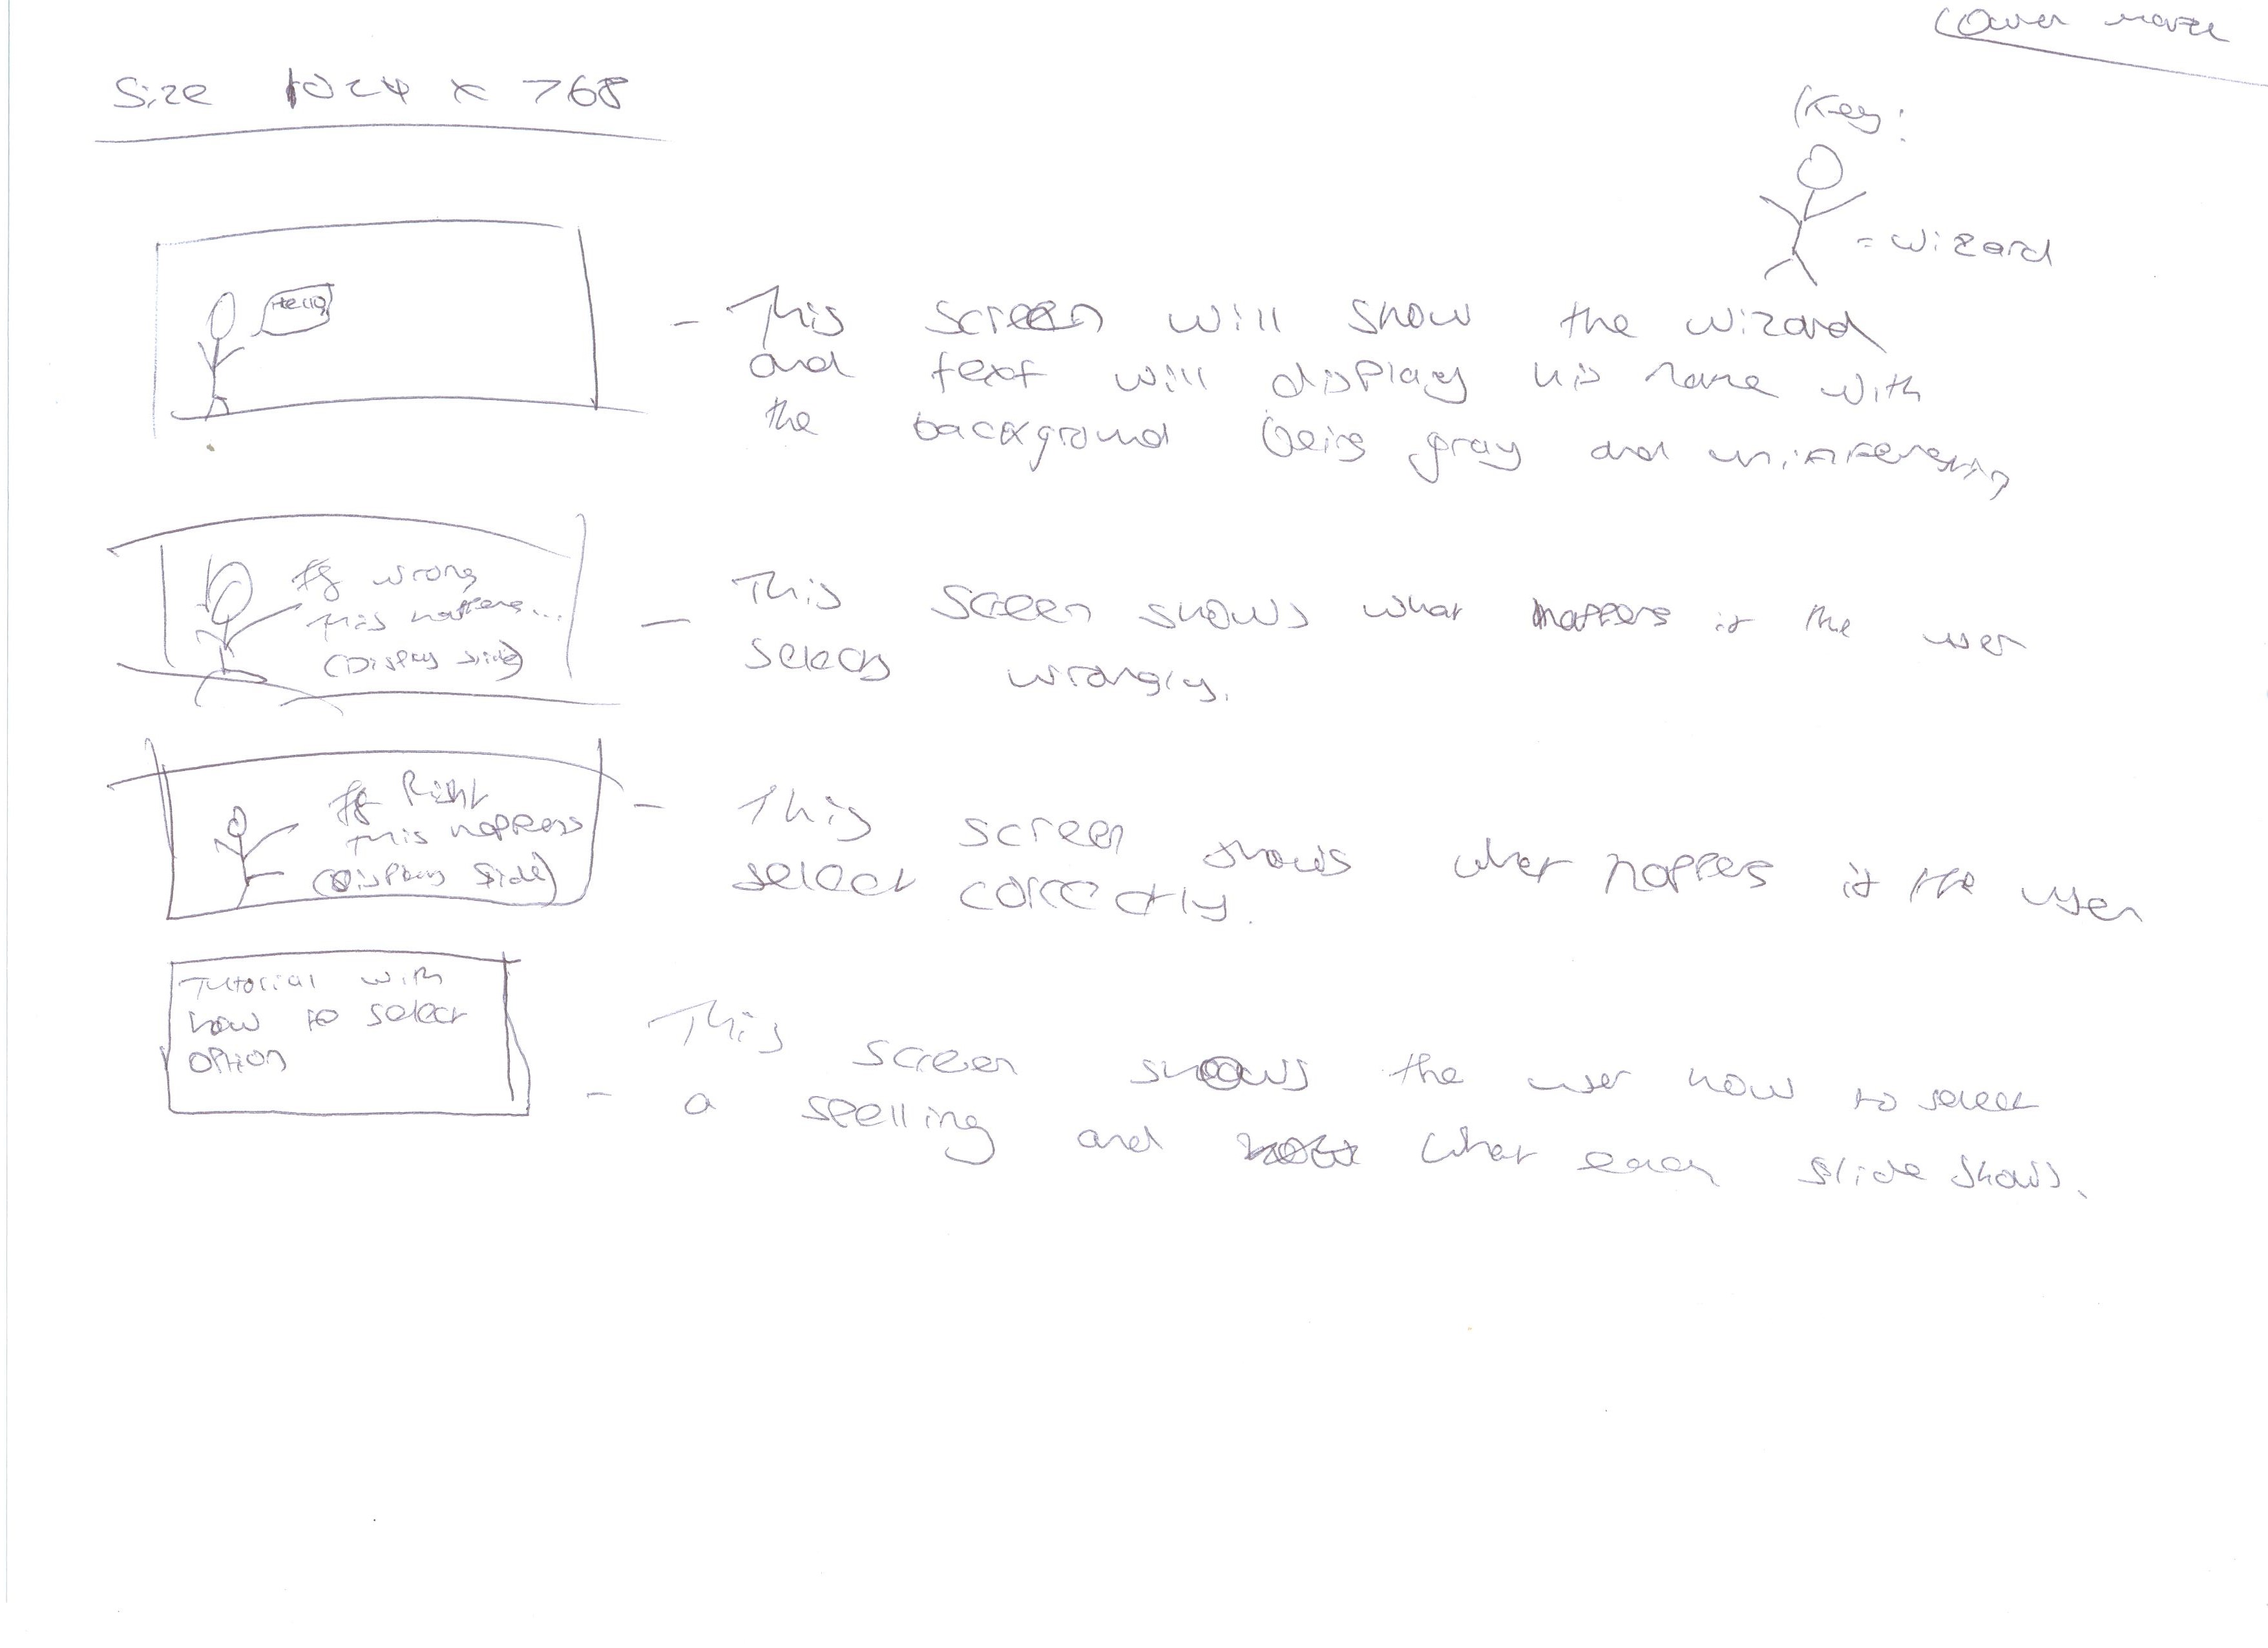 Size 1024 x 768
Key:
= wizard
Hello
- This screen will show the wizard
and text will display his name with
the background being gray and uninteresting
If wrong
this happens...
(Display slide)
- This screen shows what happens if the user
selects wrongly.
If Right
this happens
(Display slide)
- This screen shows what happens if the user
select correctly.
Tutorial with
how to select
option
- This screen shows the user how to select
a spelling and what each slide shows.